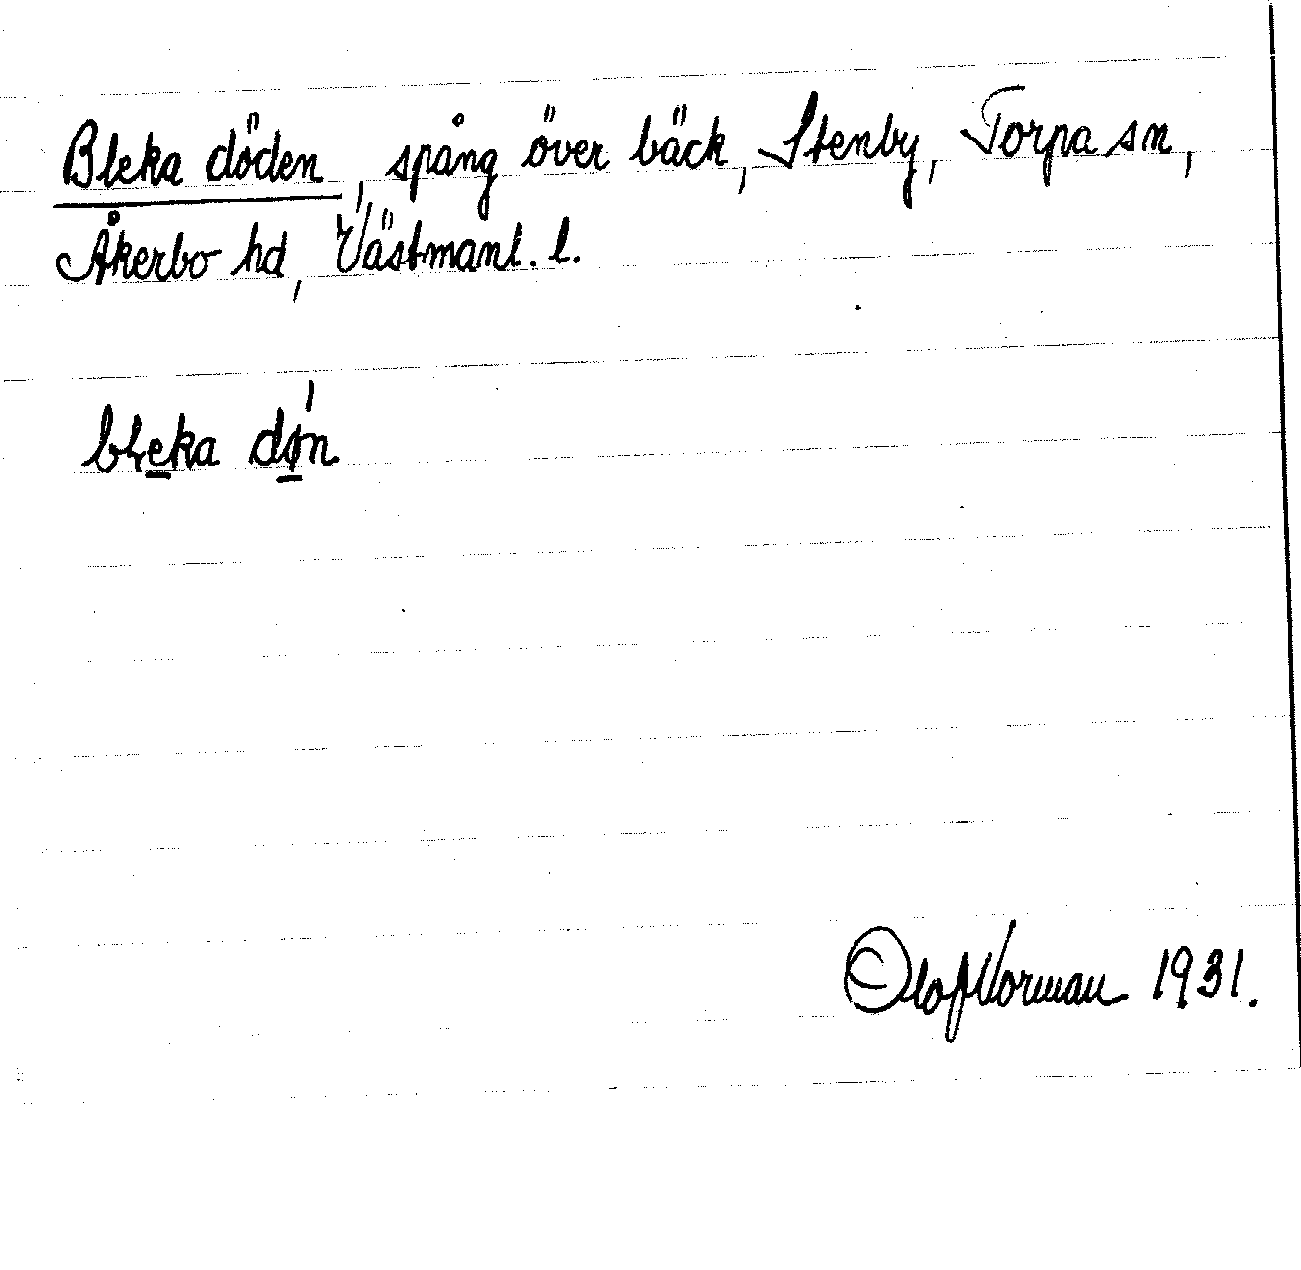 Bleka döden, spång över bäck, Stenby, Torpa sn,
Åkerbo hd, Västmanl. l.
bɫeka dǿn
Olof Norman 1931.